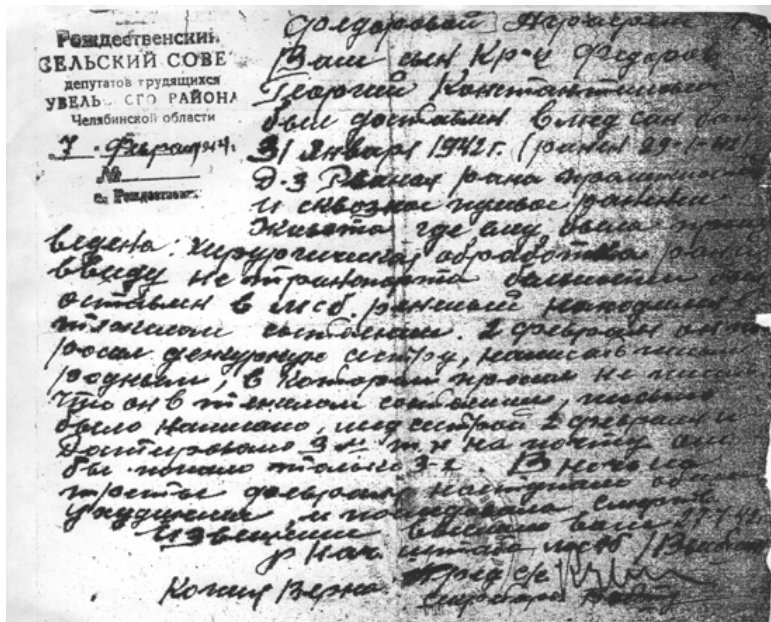 Рождественский
СЕЛЬСКИЙ СОВЕ
депутатов трудящихся
УВЕЛЬ СГО РАЙОНА
Челябинской области
7 Февраля 4
№
с. Рождествен
Ваш сын Кр-ц Федоров
Георгий Константинович
был доставлен в мед сан бат
31 Января 1942г. (ранен 29-1-42)
Д-з Рваная рана
и сквозное пулевое ранение
живота где ему была произ
ведена хирургическая обработка ран
ввиду не транспорта бельности был
оставлен в мсб. раненый находился в
тяжелом состоянии. 2 февраля он поп
росил дежурную сестру, написать письмо
родным, в котором просил не писать
что он в тяжелом состоянии, письмо
было написано, мед сестрой 2 февраля и
датировано 3-м т.к на почту оно
бы попало только 3-2. В ночь на
третье февраля наступило общее
и последовала смерть
Извещение выслано вам
Нач. штаба мсб
Копия Верна Пред с/с
секретарь